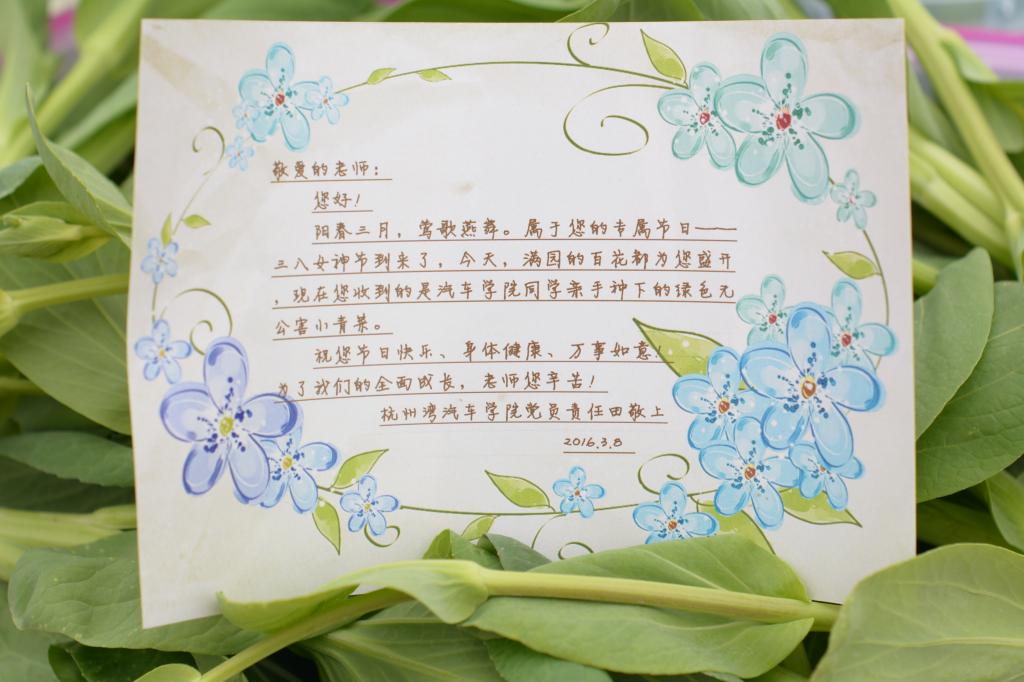 敬爱的老师：
您好！
阳春三月，莺歌燕舞。属于您的专属节日——
三八女神节到来了，今天，满园的百花都为您盛开
，现在您收到的是汽车学院同学亲手种下的绿色无
公害小青菜。
祝您节日快乐、身体健康、万事如意！
为了我们的全面成长，老师您辛苦！
杭州湾汽车学院党员责任田敬上
2016.3.8